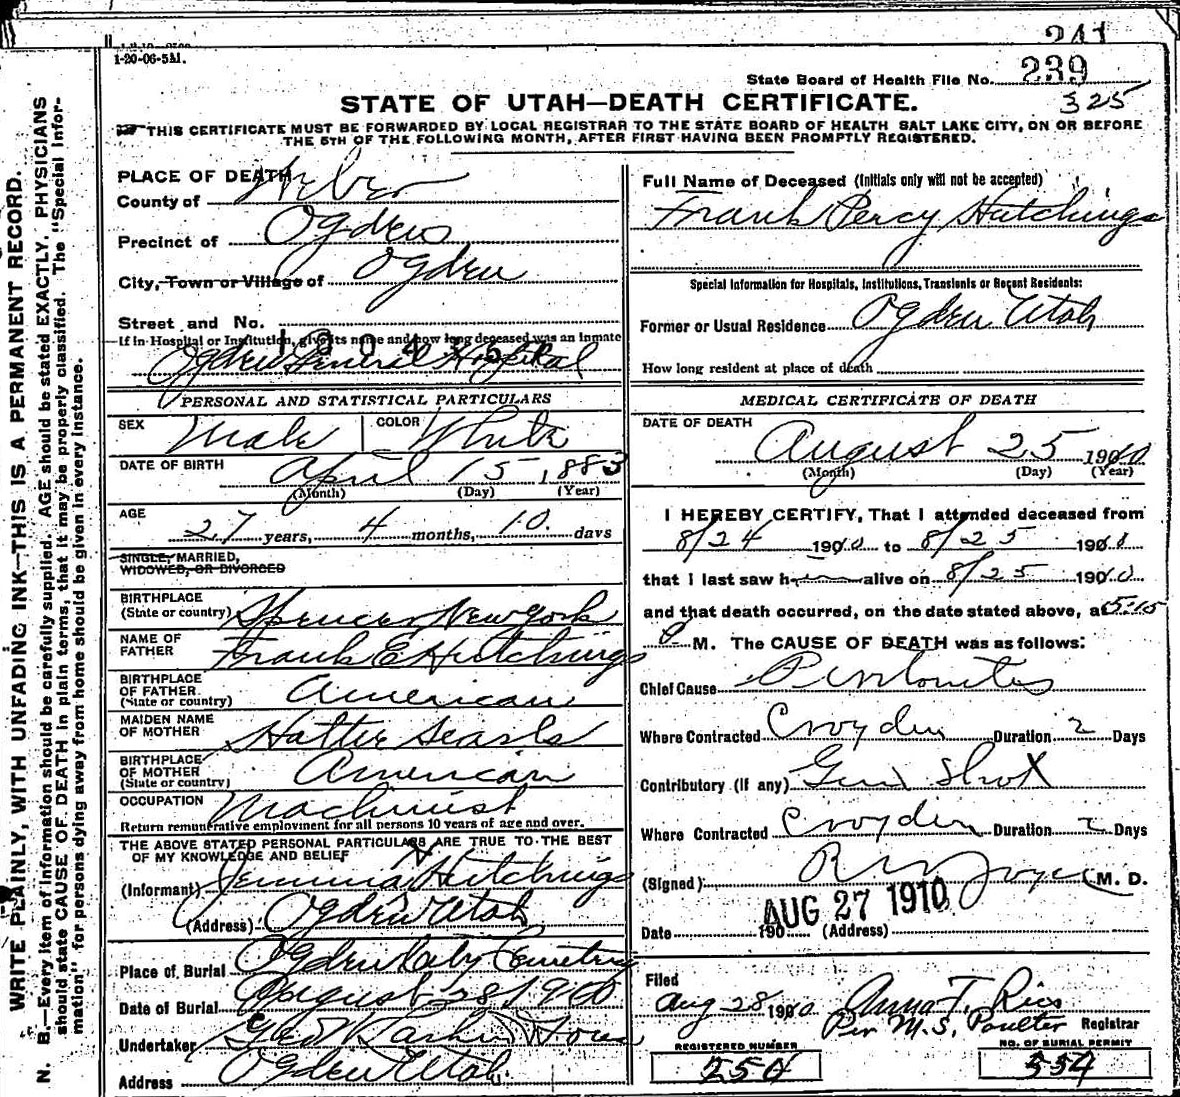 241
1-20-06-5M.
State Board of Health File No. 239
325
STATE OF UTAH—DEATH CERTIFICATE.
THIS CERTIFICATE MUST BE FORWARDED BY LOCAL REGISTRAR TO THE STATE BOARD OF HEALTH SALT LAKE CITY, ON OR BEFORE
THE 5TH OF THE FOLLOWING MONTH, AFTER FIRST HAVING BEEN PROMPTLY REGISTERED.
WRITE PLAINLY, WITH UNFADING INK—THIS IS A PERMANENT RECORD.
N. B.—Every item of information should be carefully supplied. AGE should be stated EXACTLY. PHYSICIANS
should state CAUSE OF DEATH in plain terms, that it may be properly classified. The "Special Infor-
mation" for persons dying away from home should be given in every instance.
PLACE OF DEATH
County of Weber
Precinct of Ogden
City, Town or Village of Ogden
Street and No.
If in Hospital or Institution, give its name and how long deceased was an inmate
Ogden General Hospital
PERSONAL AND STATISTICAL PARTICULARS
SEX Male COLOR White
DATE OF BIRTH April 15, 1883
(Month) (Day) (Year)
AGE
27 years, 4 months, 10 days
SINGLE, MARRIED,
WIDOWED, OR DIVORCED
BIRTHPLACE
(State or country) Spencer New York
NAME OF
FATHER Frank E Hutchings
BIRTHPLACE
OF FATHER
(State or country) American
MAIDEN NAME
OF MOTHER Hattie Searls
BIRTHPLACE
OF MOTHER
(State or country) American
OCCUPATION Machinist
Return remunerative employment for all persons 10 years of age and over.
THE ABOVE STATED PERSONAL PARTICULARS ARE TRUE TO THE BEST
OF MY KNOWLEDGE AND BELIEF
(Informant) Jemima Hutchings
(Address) Ogden Utah
Place of Burial Ogden City Cemetery
Date of Burial August 28 1910
Undertaker
Address Ogden Utah
Full Name of Deceased (Initials only will not be accepted)
Frank Percy Hutchings
Special Information for Hospitals, Institutions, Transients or Recent Residents:
Former or Usual Residence Ogden Utah
How long resident at place of death
MEDICAL CERTIFICATE OF DEATH
DATE OF DEATH
August 25 1910
(Month) (Day) (Year)
I HEREBY CERTIFY, That I attended deceased from
8/24 1910 to 8/25 1910
that I last saw h alive on 8/25 1910
and that death occurred, on the date stated above, at 5:15
P M. The CAUSE OF DEATH was as follows:
Chief Cause Peritonitis
Where Contracted Croyden Duration 2 Days
Contributory (if any) Gun Shot
Where Contracted Croyden Duration 2 Days
(Signed) M. D.
AUG 27 1910
Date 190 (Address)
Filed
Aug 28 1910 Anna T. Rice
Per M. S. Poulter Registrar
REGISTERED NUMBER
NO. OF BURIAL PERMIT
554